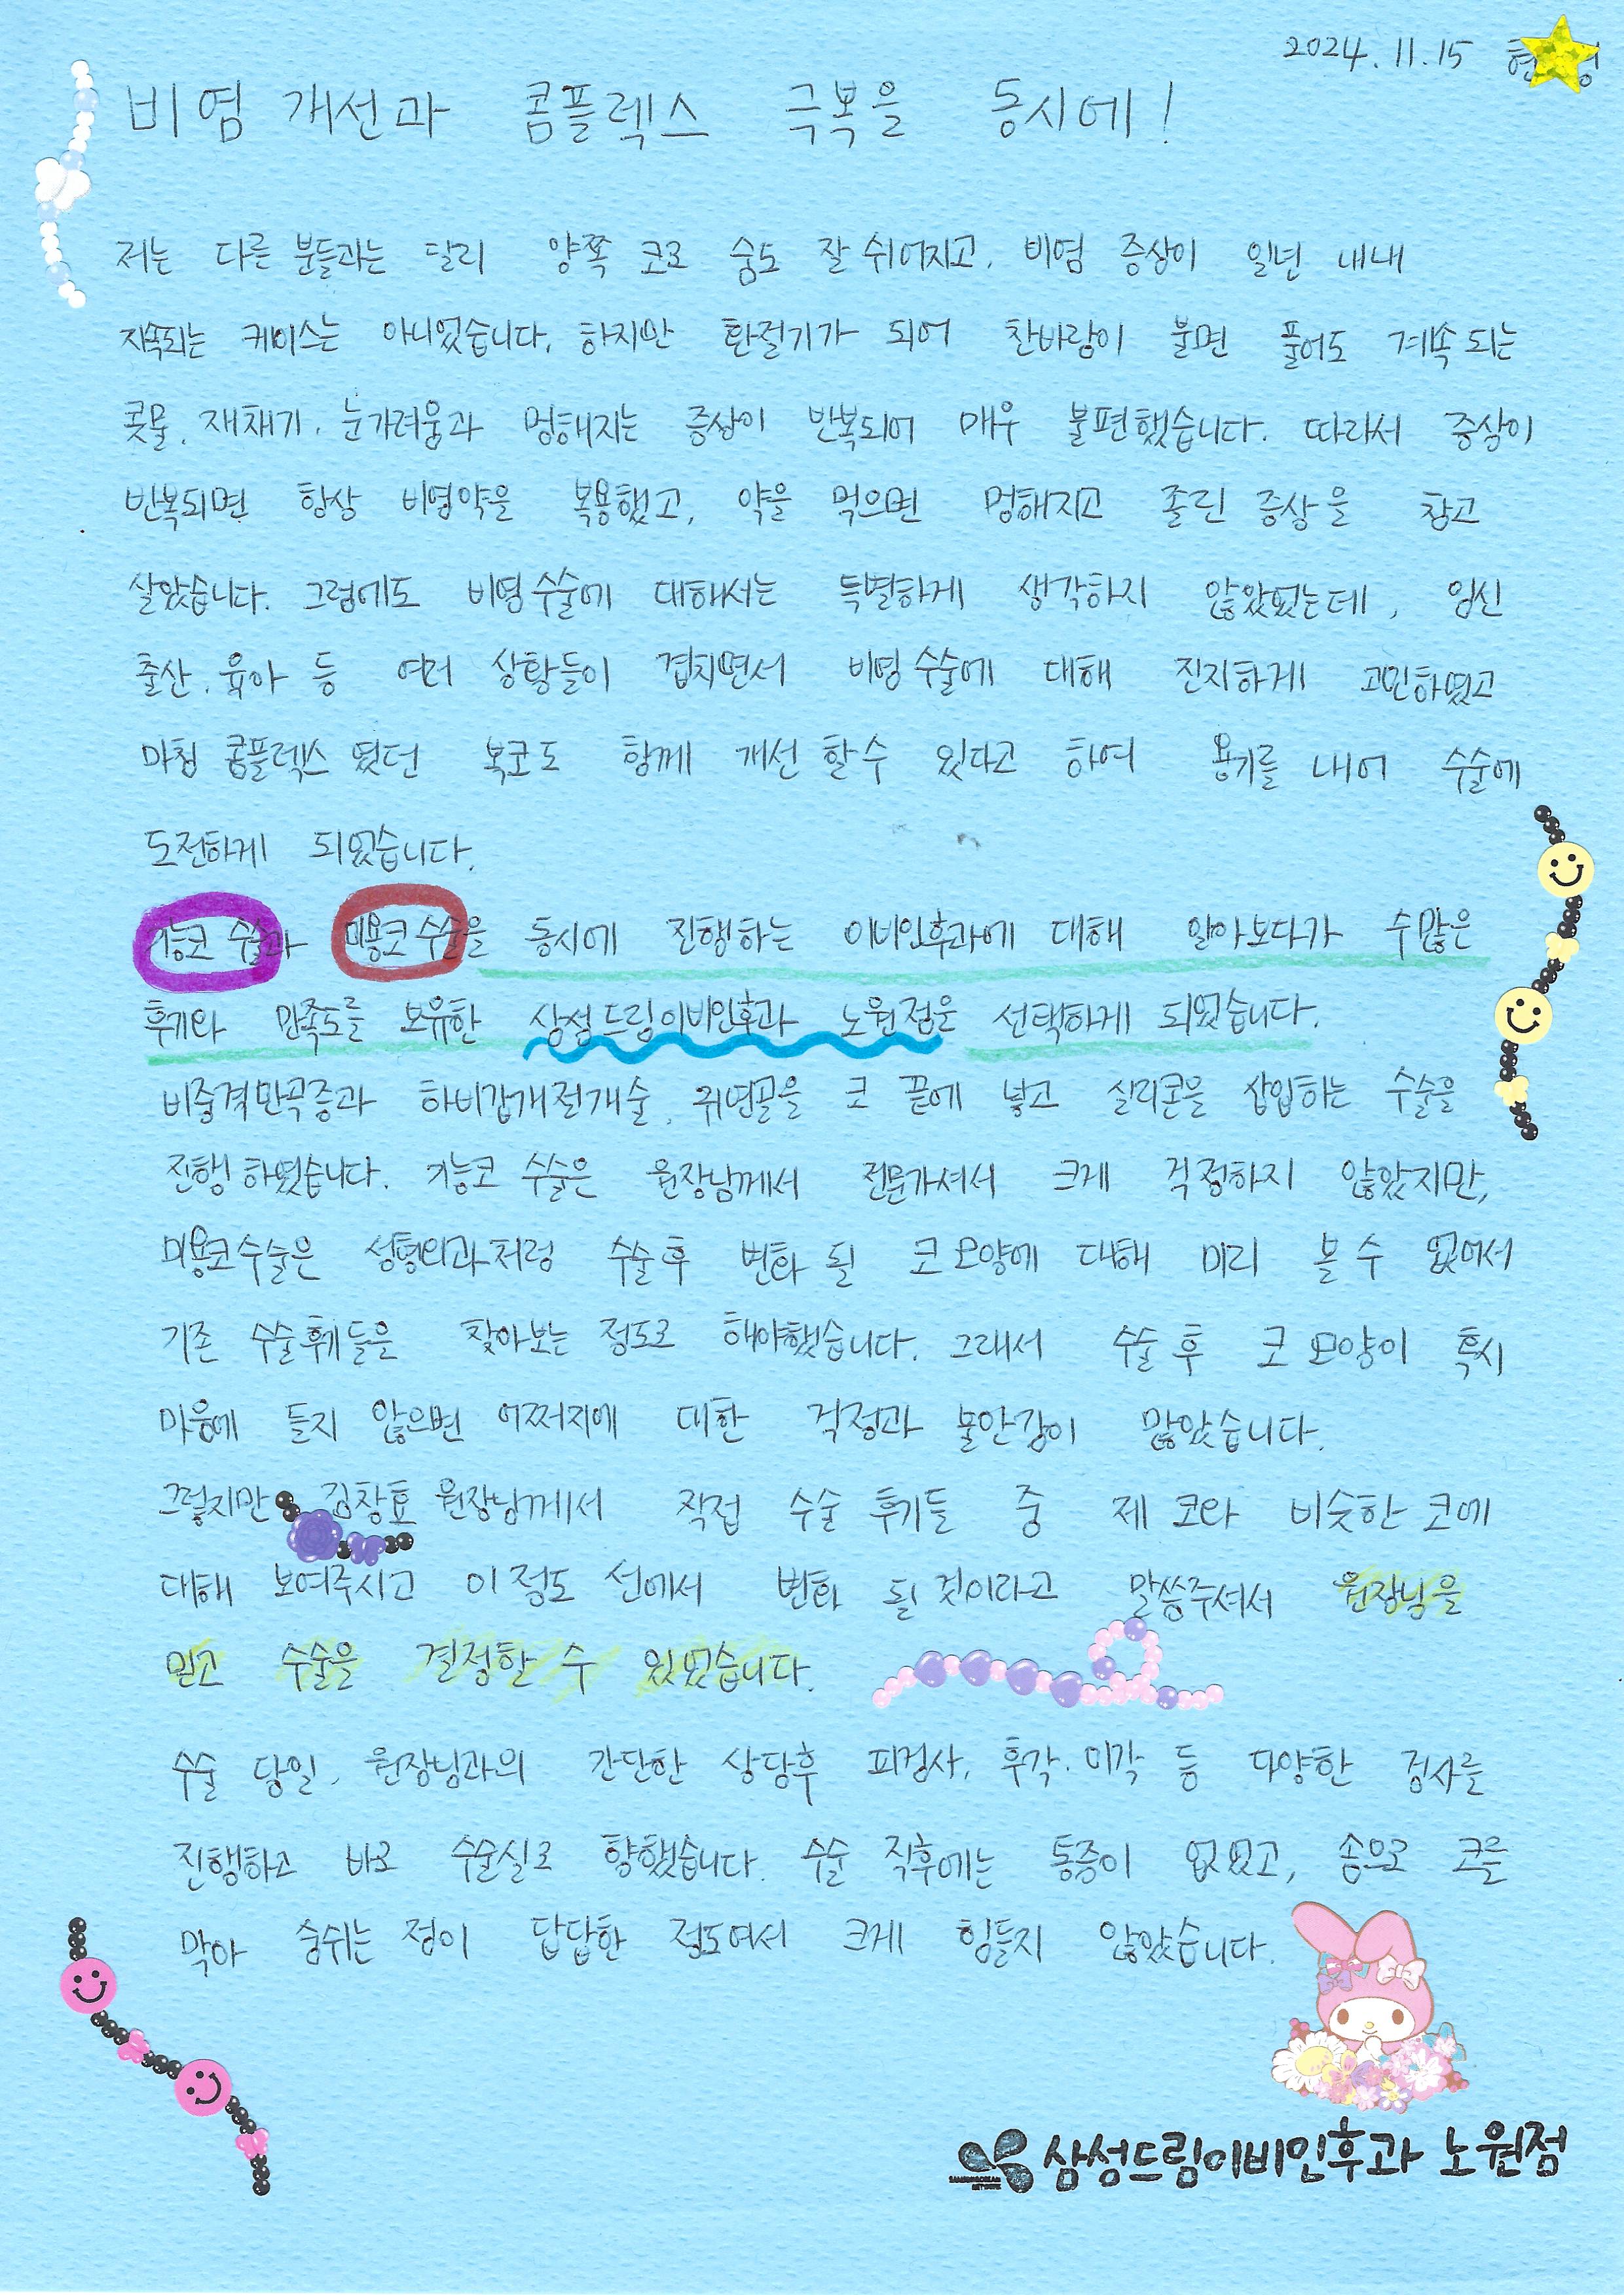 2024. 11. 15 현
비염 개선과 콤플렉스 극복을 동시에!
저는 다른 분들과는 달리 양쪽 코로 숨도 잘 쉬어지고, 비염 증상이 일년 내내
지속되는 케이스는 아니었습니다. 하지만 환절기가 되어 찬바람이 불면 풀어도 계속 되는
콧물, 재채기, 눈가려움과 멍해지는 증상이 반복되어 매우 불편했습니다. 따라서 증상이
반복되면 항상 비염약을 복용했고, 약을 먹으면 멍해지고 졸린 증상을 참고
살았습니다. 그럼에도 비염수술에 대해서는 특별하게 생각하지 않았었는데, 임신
출산, 육아 등 여러 상황들이 겹치면서 비염수술에 대해 진지하게 고민하였고
마침 콤플렉스 였던 복코도 함께 개선 할 수 있다고 하여 용기를 내어 수술에
도전하게 되었습니다.
기능코 수술과 미용코 수술을 동시에 진행하는 이비인후과에 대해 알아보다가 수많은
후기와 만족도를 보유한 삼성드림이비인후과 노원점을 선택하게 되었습니다.
비중격만곡증과 하비갑개절개술, 귀연골을 코 끝에 넣고 실리콘을 삽입하는 수술을
진행 하였습니다. 기능코 수술은 원장님께서 전문가셔서 크게 걱정하지 않았지만,
미용코수술은 성형외과처럼 수술 후 변화 될 코 모양에 대해 미리 볼 수 없어서
기존 수술후기들을 찾아보는 정도로 해야했습니다. 그래서 수술 후 코 모양이 혹시
마음에 들지 않으면 어쩌지에 대한 걱정과 불안감이 많았습니다.
그렇지만 김창효 원장님께서 직접 수술 후기들 중 제 코와 비슷한 코에
대해 보여주시고 이 정도 선에서 변화 될 것이라고 말씀주셔서 원장님을
믿고 수술을 결정할 수 있었습니다.
수술 당일, 원장님과의 간단한 상담후 피검사, 후각·미각 등 다양한 검사를
진행하고 바로 수술실로 향했습니다. 수술 직후에는 통증이 없었고, 솜으로 코를
막아 숨쉬는 점이 답답한 정도여서 크게 힘들지 않았습니다.
삼성드림이비인후과 노원점